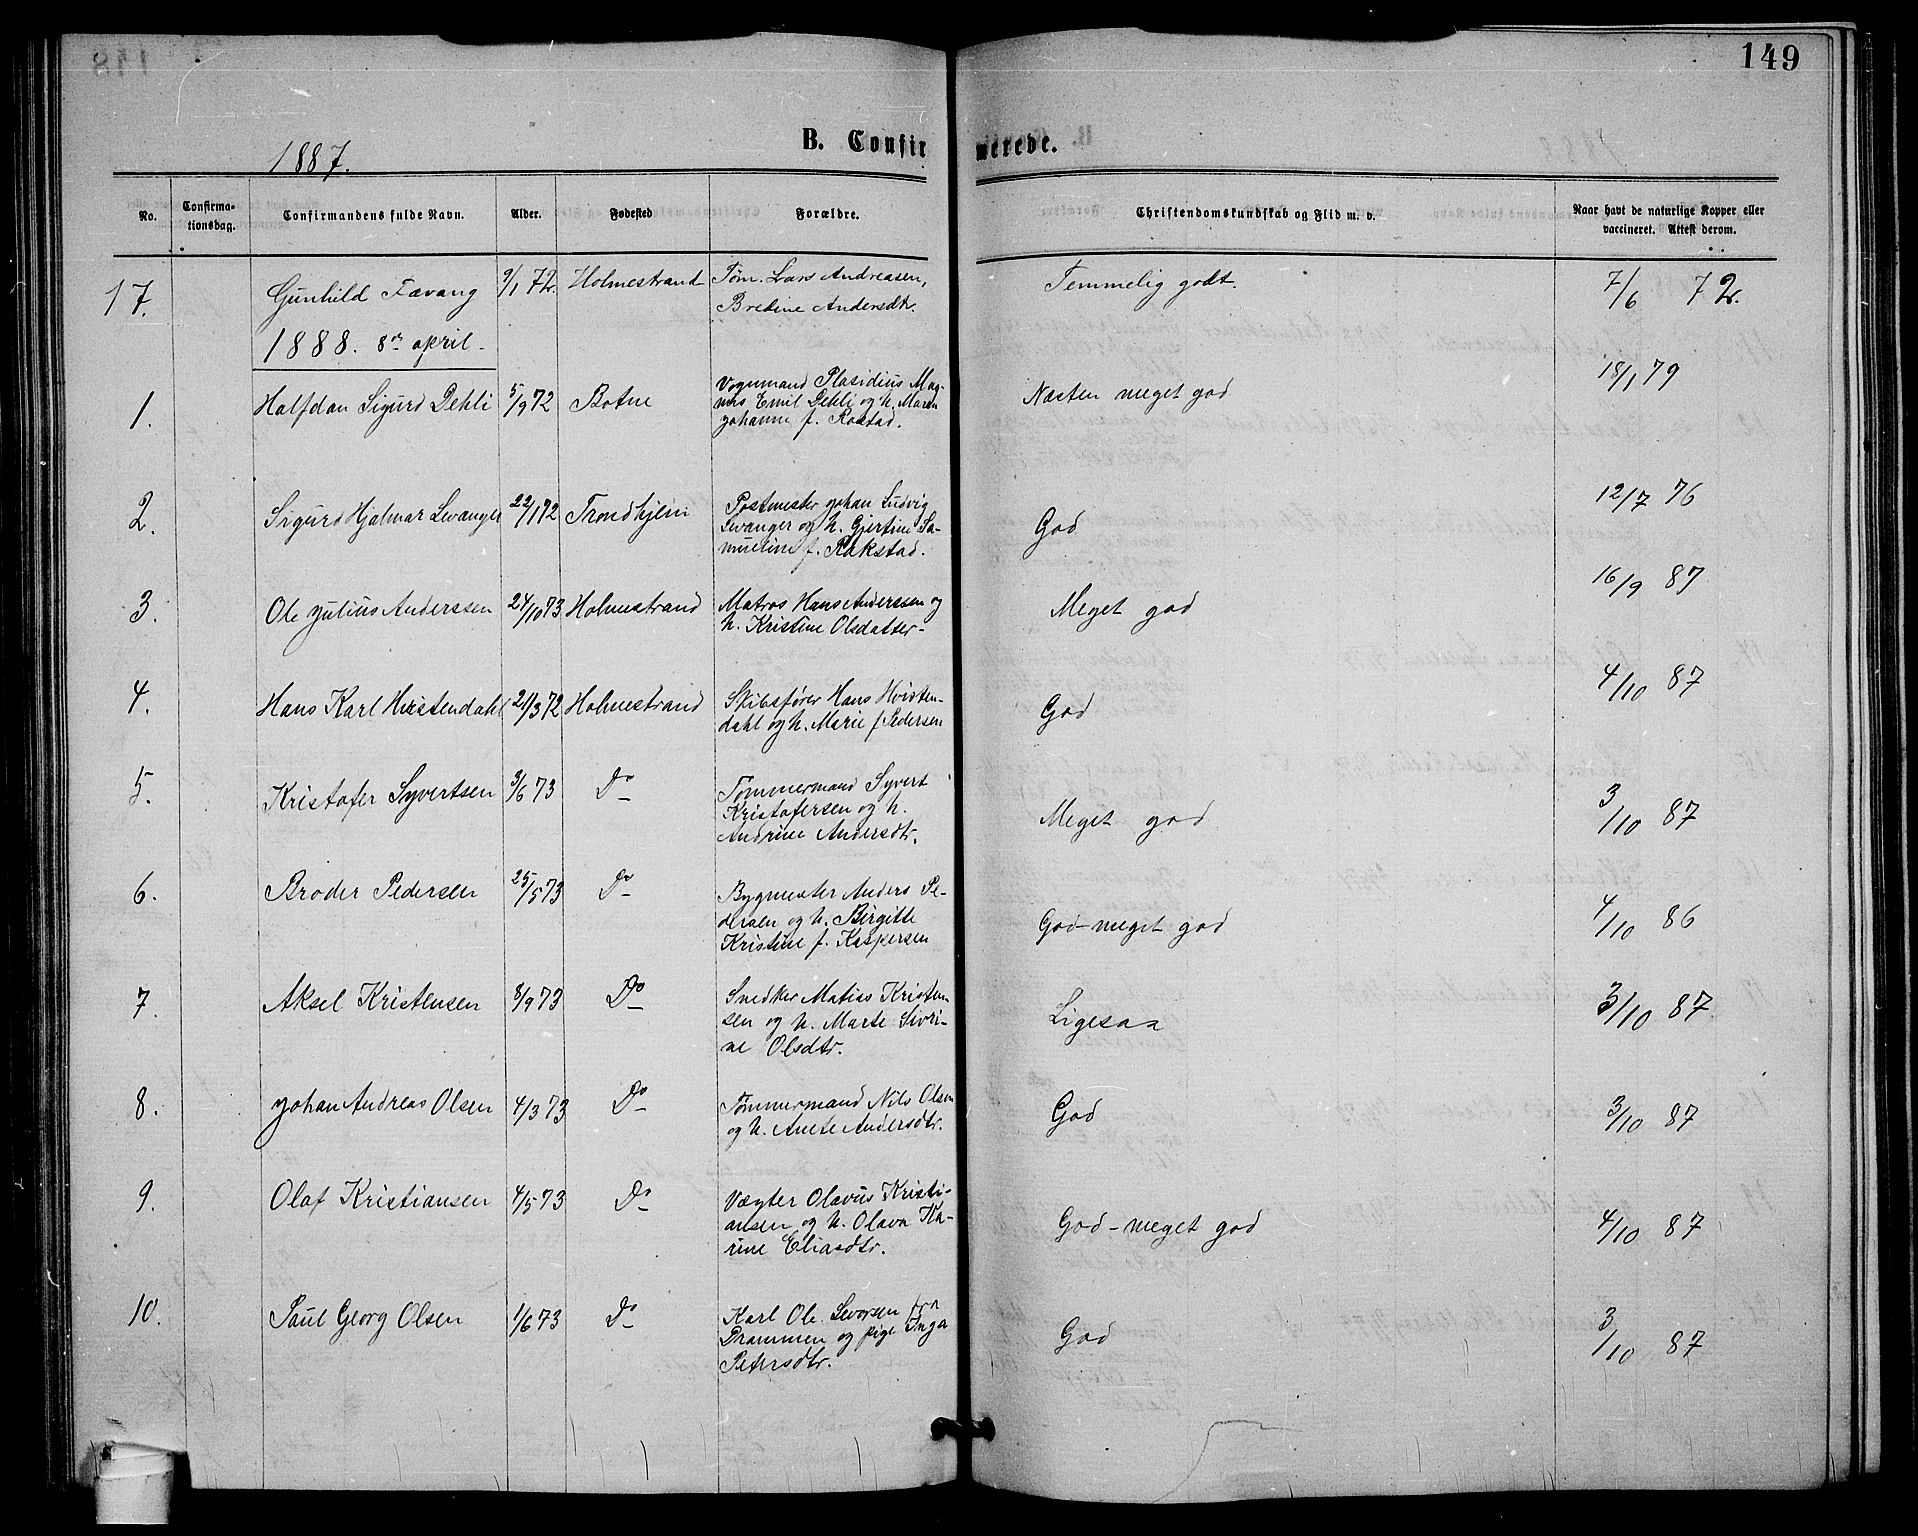 149
1887.
B. Confirmerede.
No. Confirmationsdag. Confirmandens fulde Navn. Alder. Fødested Forældre. Christendomskundskab og Flid m. v. Naar havt de naturlige Kopper eller vaccineret. Attest derom.
17. Gunhild Fævang 9/1 72. Holmestrand Tøm. Lars Andreasen, Temmelig godt. 7/6 72.
Bredine Andersdtr.
1888. 8de april.
1. Halfdan Sigurd Dehli 5/9 72 Botne Vognmand Plasidius Mag- Næsten meget god 18/1 79
nus Emil Dehli og h. Maren
Johanne f. Rostad.
2. Sigurd Hjalmar Levanger 22/1 72 Trondhjem Postmester Johan Ludvig God 12/7 76
Levanger og h. Gjertine Sa-
mueline f. Rakstad.
3. Ole Julius Anderssen 24/10 73 Holmestrand Matros Hans Anderssen og Meget god 16/9 87
h. Kristine Olsdatter-
4. Hans Karl Hvistendahl 21/3 72 Holmestrand Skibsfører Hans Hvisten- God 4/10 87
dahl og h. Marie f. Pedersen
5. Kristofer Syvertsen 3/6 73 Do Tømmermand Syvert Meget god 3/10 87
Kristofersen og h.
Andrine Andersdtr.
6. Broder Pedersen 25/5 73 Do Bygmester Anders Pe- God-meget god 4/10 86
dersen og h. Birgitte
Kristine f. Kaspersen
7. Aksel Kristensen 8/9 73 Do Snedker Matias Kristen- Ligesaa 3/10 87
sen og h. Marte Sivri-
ne Olsdtr.
8. Johan Andreas Olsen 4/3 73 Do Tømmermand Nils Olsen God 3/10 87
og h. Anete Andersdtr.
9. Olaf Kristiansen 4/5 73 Do Vægter Olavus Kristi- God-meget god 4/10 87
ansen og h. Olava Ka-
rine Eliasdtr.
10. Paul Georg Olsen 1/6 73 Do Karl Ole Sevorsen fra God 3/10 87
Drammen og pige Inga
Petersdtr.